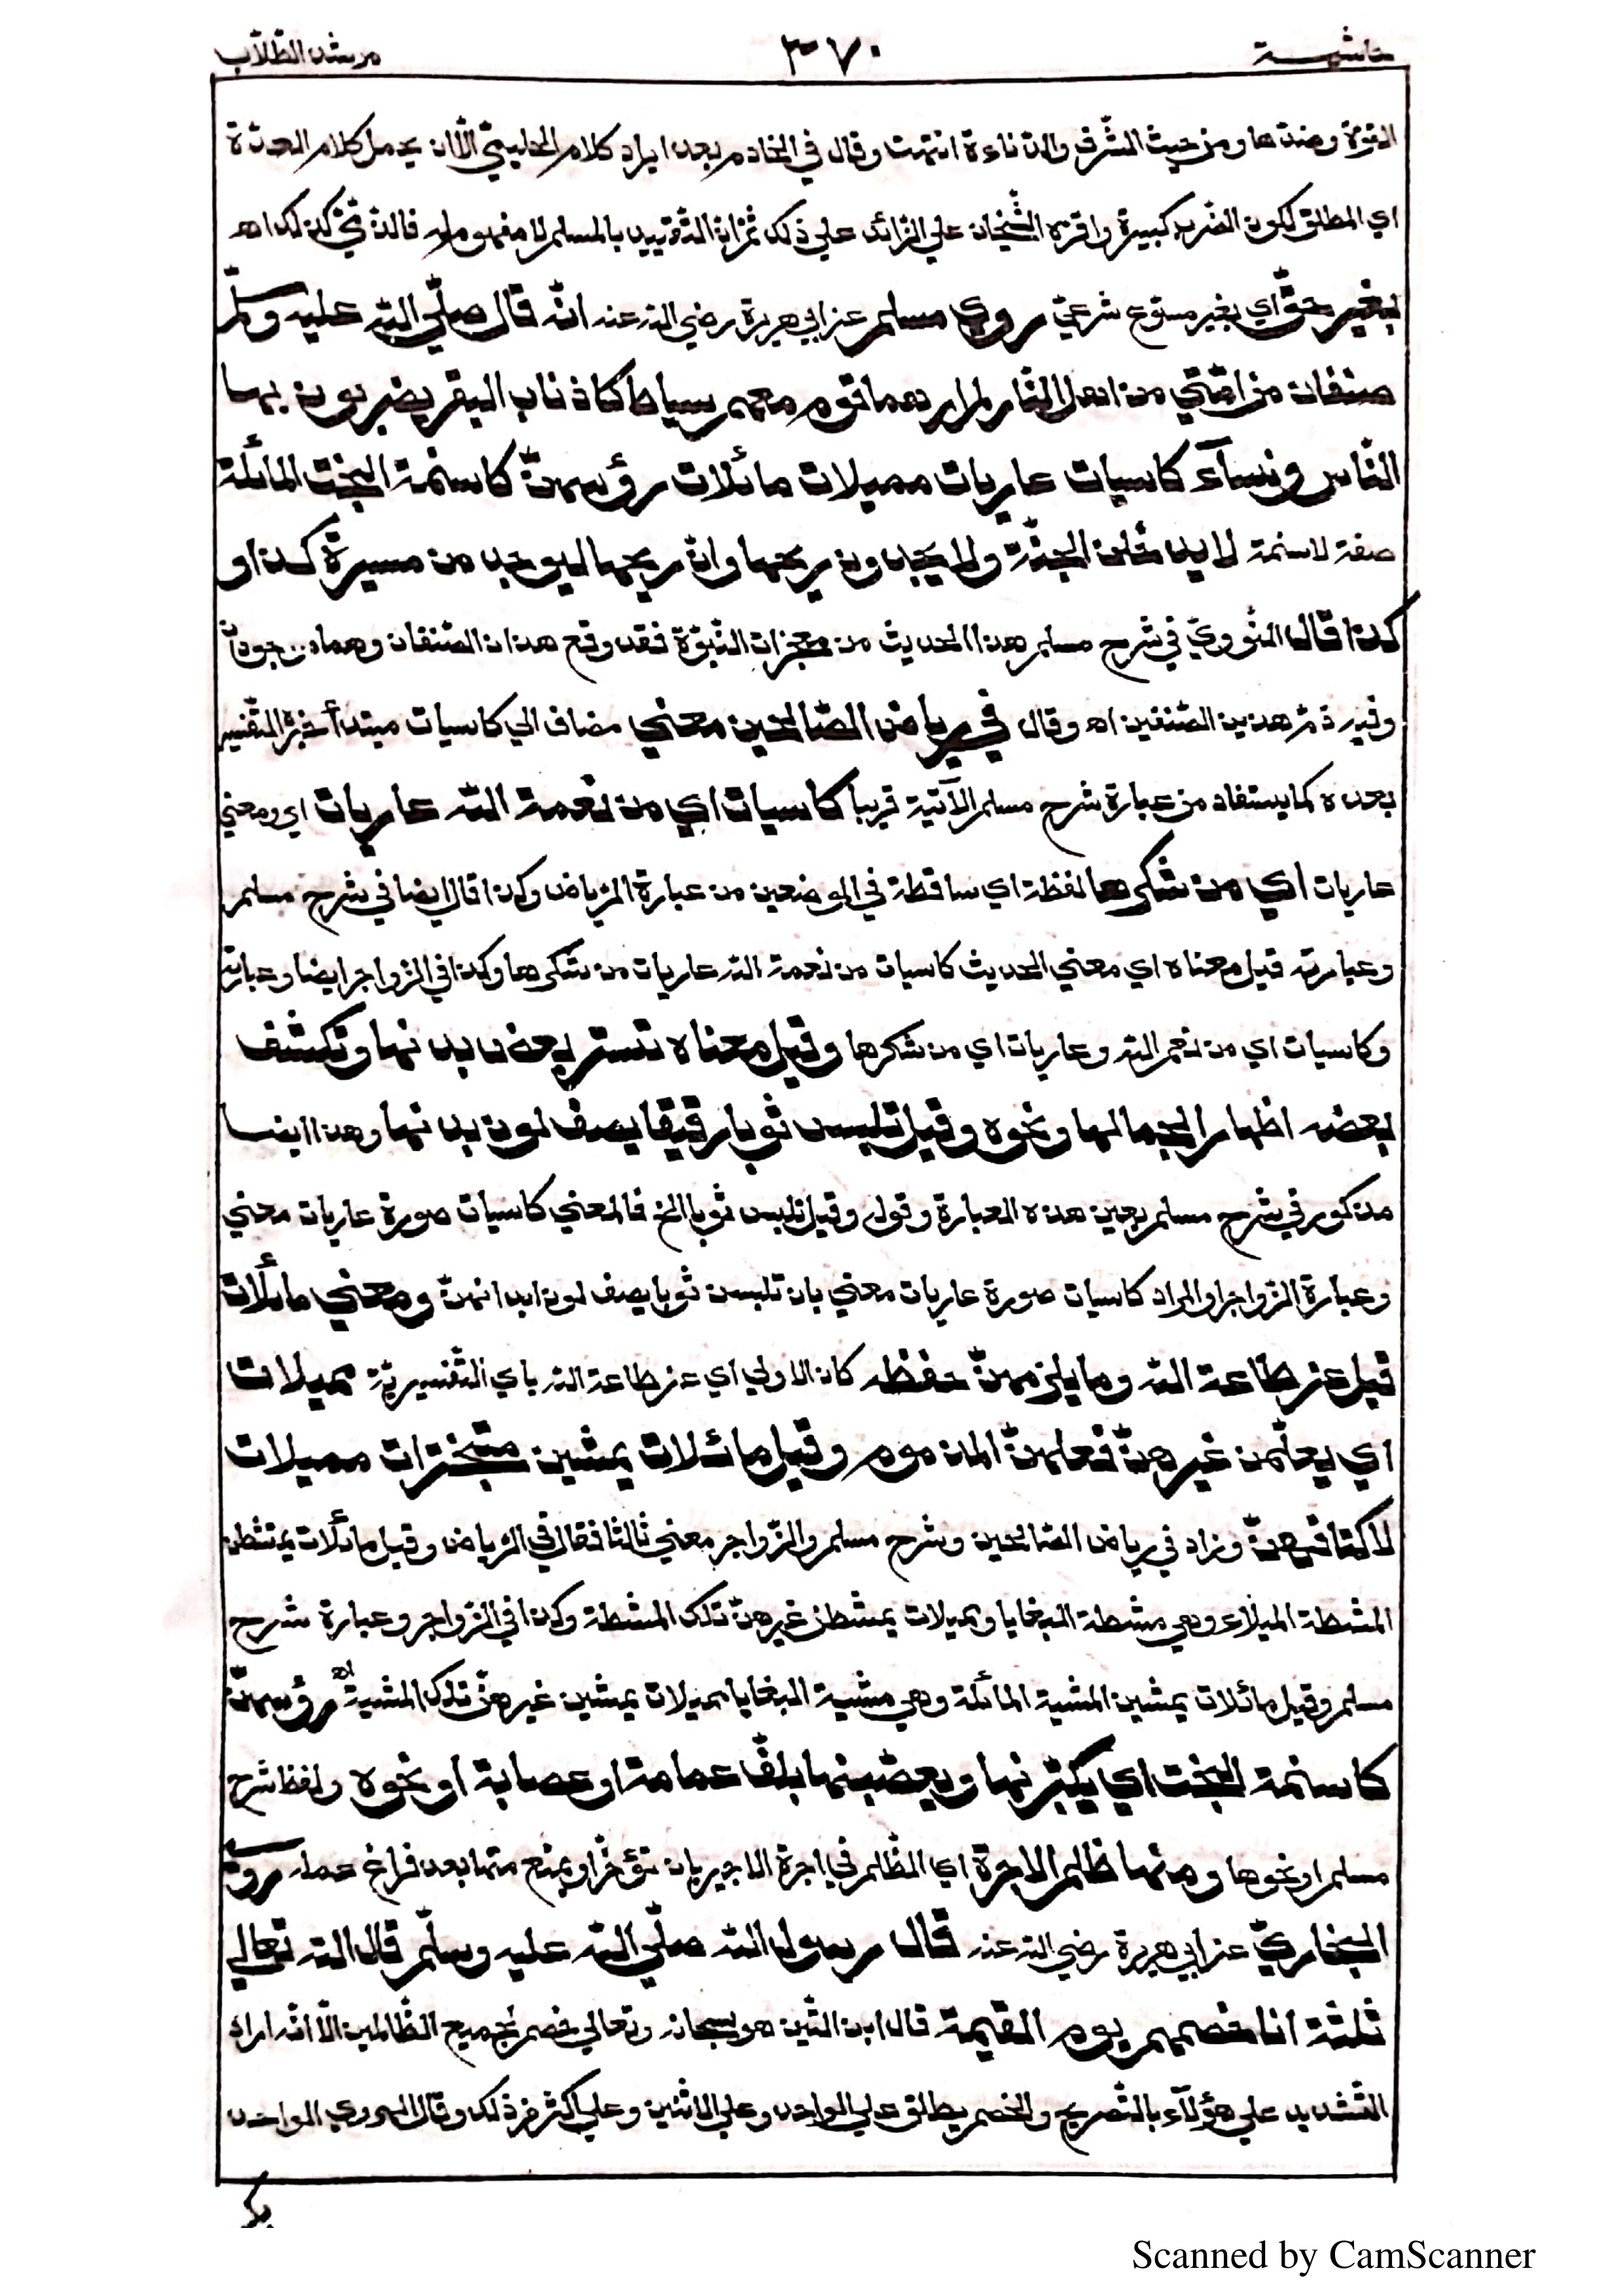 حاشية ٣٧٠ مرشد الطلاب
القوة وضدها ومن حيث الشرف والدناءة انتهت وقال في الخادم بعد ايراد كلام الحليمي الا ان يحمل كلام العدة
اي المطلق لكون الضرب كبيرة واقره الشيخان علي الزائد علي ذلك ثم ان التقييد بالمسلم لا مفهوم له فالذمي كذلك اه
بغير حق اي بغير مسوغ شرعي روي مسلم عن ابي هريرة رضي الله عنه انه قال صلي الله عليه وسلم
صنفان من امتي من اهل النار لم ارهما قوم معهم سياط كاذناب البقر يضربون بها
الناس ونسآء كاسيات عاريات مميلات مائلات رؤسهن كاسنمة البخت المائلة
صفة لاسنمة لا يدخلن الجنة ولا يجدون ريحها وان ريحها ليوجد من مسيرة كذا و
كذا قال النووي في شرح مسلم هذا الحديث من معجزات النبوة فقد وقع هذان الصنفان وهما موجودان
وفيه ذم هذين الصنفين اه وقال في رياض الصالحين معني مضاف الي كاسيات مبتدأ خبره التفسير
بعده كما يستفاد من عبارة شرح مسلم الآتية قريبا كاسيات اي من نعمة الله عاريات اي ومعني
عاريات اي من شكرها لفظة اي ساقطة في الموضعين من عبارة الرياض وكذا قال ايضا في شرح مسلم
وعبارته قيل معناه اي معني الحديث كاسيات من نعمة الله عاريات من شكرها وكذا في الزواجر ايضا وعبارته
وكاسيات اي من نعم الله وعاريات اي من شكرها وقيل معناه تستر بعض بدنها وتكشف
بعضه اظهارا لجمالها ونحوه وقيل تلبس ثوبا رقيقا يصف لون بدنها وهذا ايضا
مذكور في شرح مسلم بعين هذه العبارة وقوله وقيل تلبس ثوبا الخ فالمعني كاسيات صورة عاريات معني
وعبارة الزواجر والمراد كاسيات صورة عاريات معني بان تلبسن ثوبا يصف لون ابدانهن ومعني مائلات
قيل عن طاعة الله وما يلزمهن حفظه كان الاولي اي عن طاعة الله باي التفسيرية مميلات
اي يعلمن غيرهن فعلهن المذموم وقيل مائلات يمشين متبخترات مميلات
لاكتافهن وزاد في رياض الصالحين وشرح مسلم والزواجر معني ثالثا فقال في الرياض وقيل مائلات يمتشطن
المشطة الميلاء وهي مشطة البغايا ومميلات يمشطن غيرهن تلك المشطة وكذا في الزواجر وعبارة شرح
مسلم وقيل مائلات يمشين المشية المائلة وهي مشية البغايا مميلات يمشين غيرهن تلك المشية اه رؤسهن
كاسنمة البخت اي يكبرنها ويعصبنها بلف عمامة او عصابة او نحوه ولفظ شرح
مسلم او نحوها ومنها ظلم الاجرة اي الظلم في اجرة الاجير بان تؤخر او يمنع منها بعد فراغ عمله روي
البخاري عن ابي هريرة رضي الله عنه قال رسول الله صلي الله عليه وسلم قال الله تعالي
ثلثة انا خصمهم يوم القيمة قال ابن التين هو سبحانه وتعالي خصم لجميع الظالمين الا انه اراد
التشديد علي هؤلآء بالتصريح والخصم يطلق علي الواحد وعلي الاثنين وعلي اكثر من ذلك وقال الهروي الواحد
Scanned by CamScanner